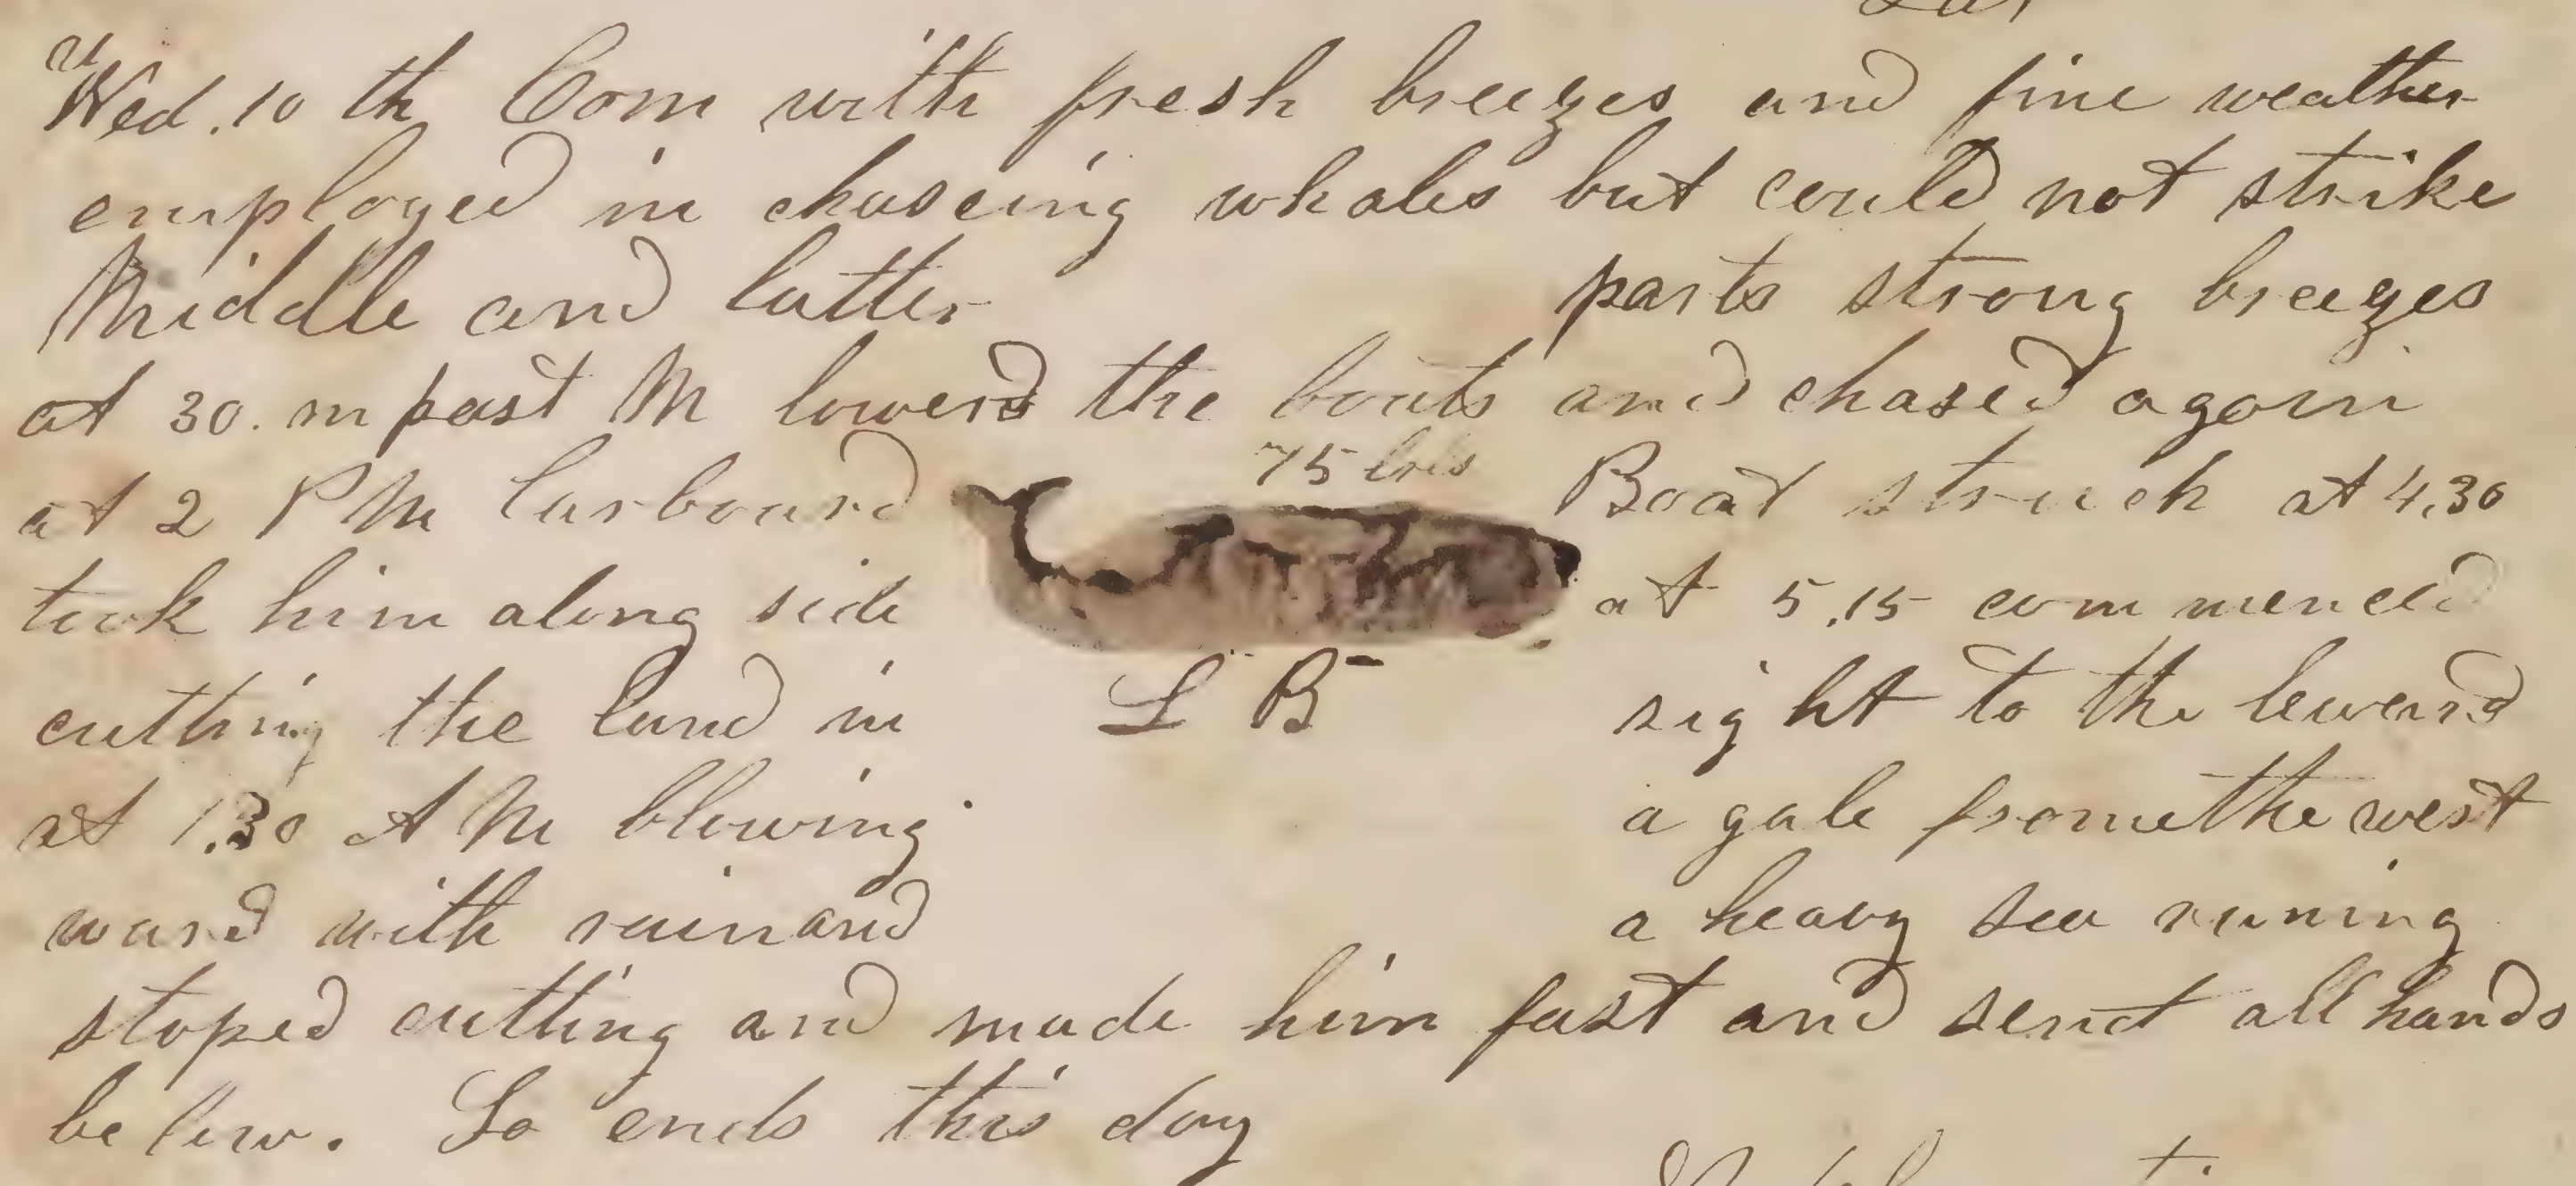 Wed. 10 th Com with fresh breezes and fine weather
employed in chaseing whales but could not strike
Middle and latter parts strong breezes
at 30. m past M lowerd the boats and chased again
75 brls
at 2 P M Larboard Boat struck at 4,30
took him along side at 5,15 commenced
cutting the land in sight to the leward
L B
at 1,30 A M blowing a gale frome the west
ward with rain and a heavy sea runing
stoped cutting and made him fast and sent all hands
be low. So ends this day